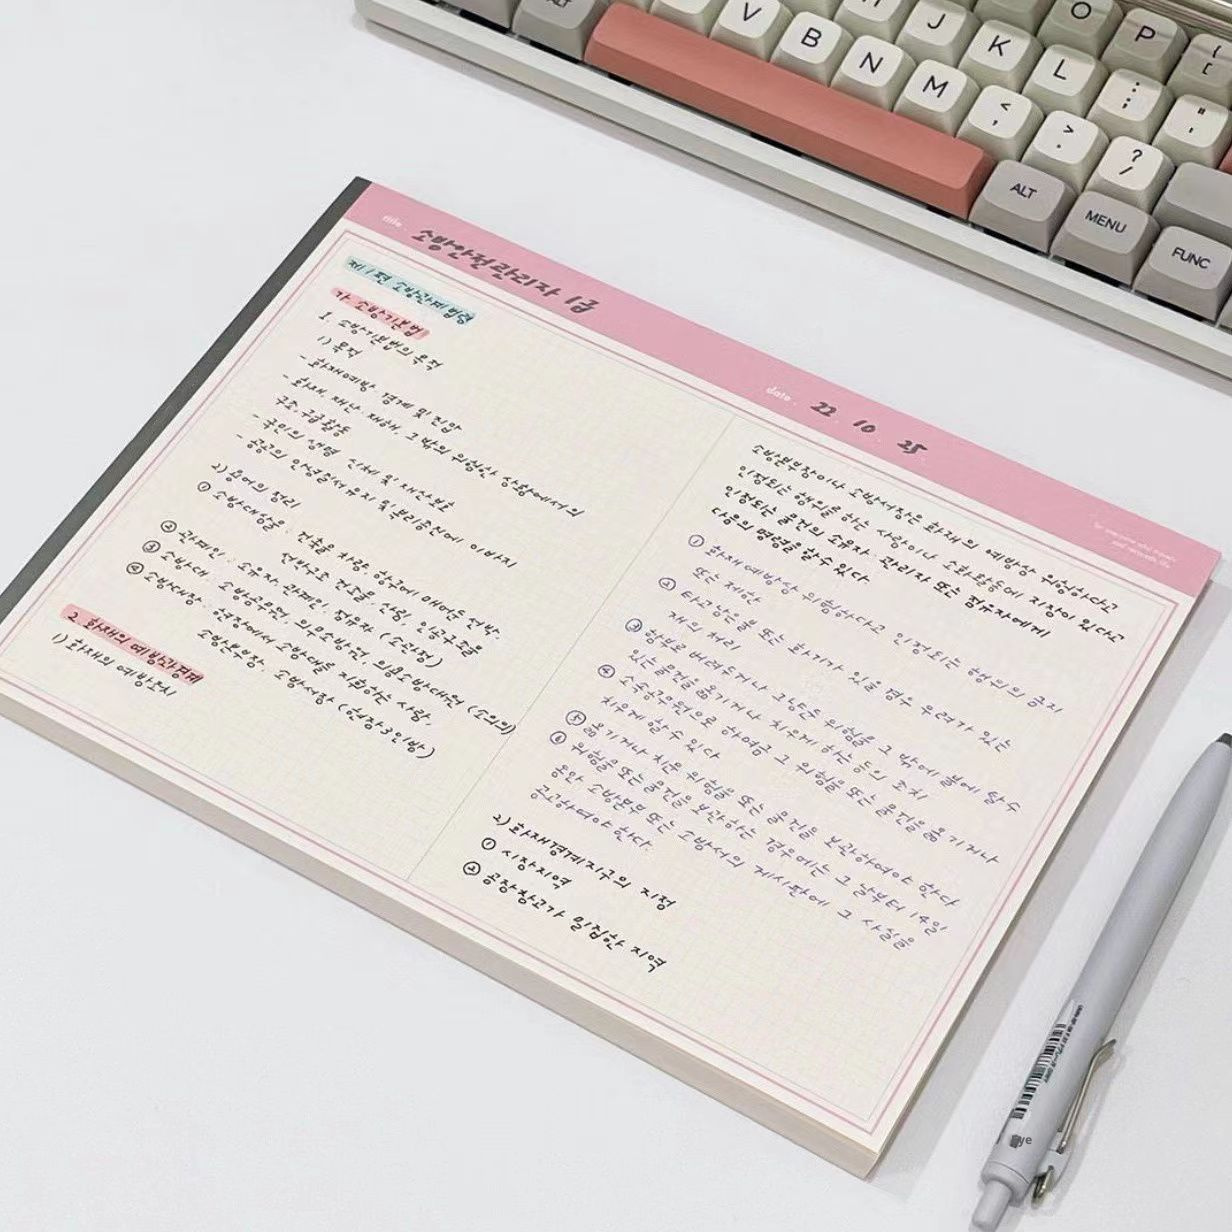 ALT
V
B
N
M
J
K
L
O
P
: ;
" '
< ,
> .
? /
ALT
MENU
FUNC
title .
소방안전관리자 1급
date .
22 . 10 . 25
제 1편 소방관계법령
가. 소방기본법
1. 소방기본법의 목적
1) 목적
- 화재예방 경계 및 진압
- 화재, 재난, 재해, 그 밖의 위험한 상황에서의
구조 구급활동
- 국민의 생명 신체 및 재산보호
- 공공의 안녕질서유지 및 복리증진에 이바지
2) 용어의 정리
① 소방대상물 : 건축물, 차량, 항구에 매어둔 선박,
선박건조 건조물, 산림, 인공구조물
② 관계인 : 소유자, 관리인, 점유자 (소관점)
③ 소방대 : 소방공무원, 의무소방원, 의용소방대원 (소의의)
④ 소방대장 : 현장에서 소방대를 지휘하는 사람
소방본부장, 소방서장 (현장3인방)
2. 화재의 예방과경계
1) 화재의 예방조치
소방본부장이나 소방서장은 화재의 예방상 위험하다고
인정되는 행위를 하는 사람이나 소화활동에 지장이 있다고
인정되는 물건의 소유자 · 관리자 또는 점유자에게
다음의 명령을 할 수 있다
① 화재예방상 위험하다고 인정되는 행위의 금지
또는 제한
② 타고남은 불 또는 화기가 있을 경우 우려가 있는
재의 처리
③ 함부로 버려두거나 그냥둔 위험물 그 밖에 불에 탈 수
있는 물건을 옮기거나 치우게 하는 등의 조치
④ 소속공무원으로 하여금 그 위험물 또는 물건을 옮기거나
치우게 할 수 있다
⑤ 옮기거나 치운 위험물 또는 물건을 보관하여야 한다
⑥ 위험물 또는 물건을 보관하는 경우에는 그 날부터 14일
동안 소방본부 또는 소방서의 게시판에 그 사실을
공고하여야 한다
2) 화재경계지구의 지정
① 시장지역
② 공장창고가 밀집한 지역